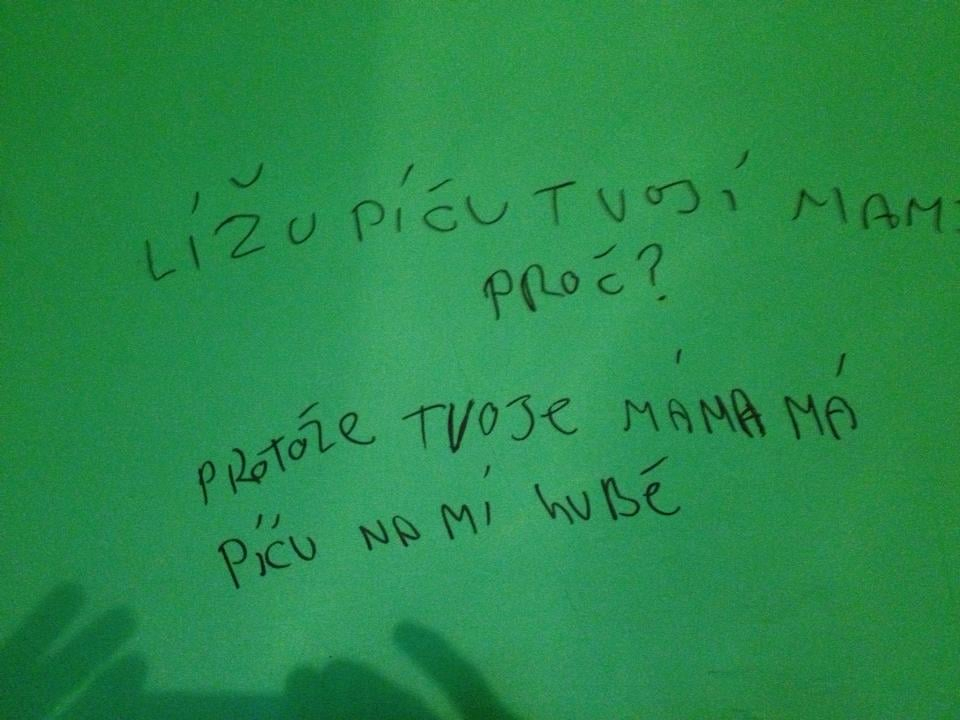 LÍŽU PÍČU TVOJÍ MAMI
PROČ?
PROTOŽE TVOJE MÁMA MÁ
PÍČU NA MÍ hUBĚ